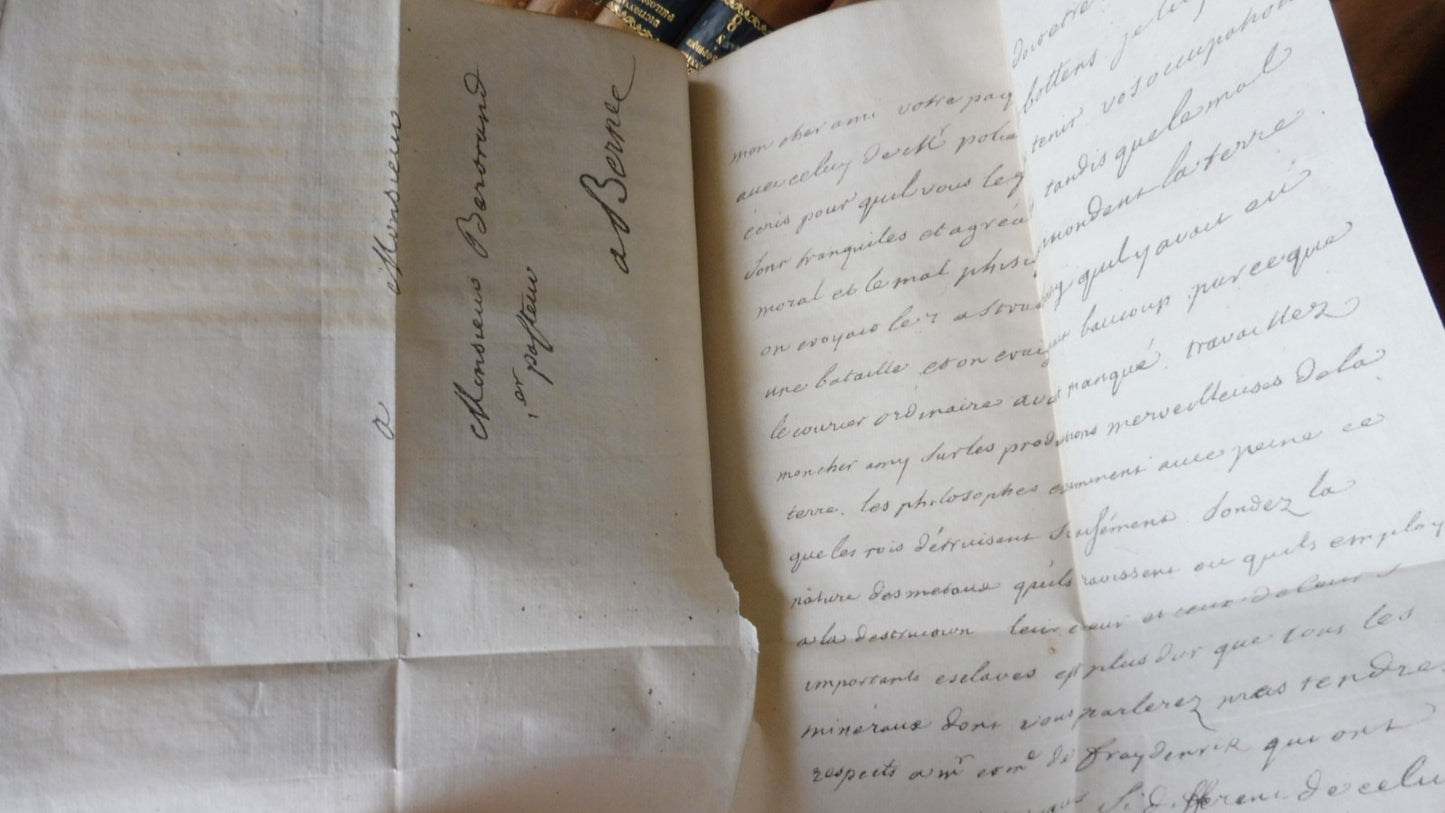 a Monsieur
Monsieur Bertrand
1er pasteur
a Berne
d'avoir
mon cher ami votre pay
avec celuy de Mr polier bottens je luy
écris pour quil vous le tenir vos occupations
sont tranquiles et agréa tandis que le mal
moral et le mal phisi inondent la terre.
on croyait le 7 a strasbourg quil y avait eu
une bataille et on craignait baucoup parceque
le courier ordinaire avait manqué. travaillez
mon cher amy sur les productions merveilleuses de la
terre. les philosophes examinent avec peine ce
que les rois détruisent si aisément. sondez la
nature des metaux qu'ils ravissent ou quils employ
a la destruction leur cœur et ceux de leurs
importants esclaves est plus dur que tous les
mineraux dont vous parlerez mes tendre
respects a mr et me de freydenrik qui ont
si différent de celu